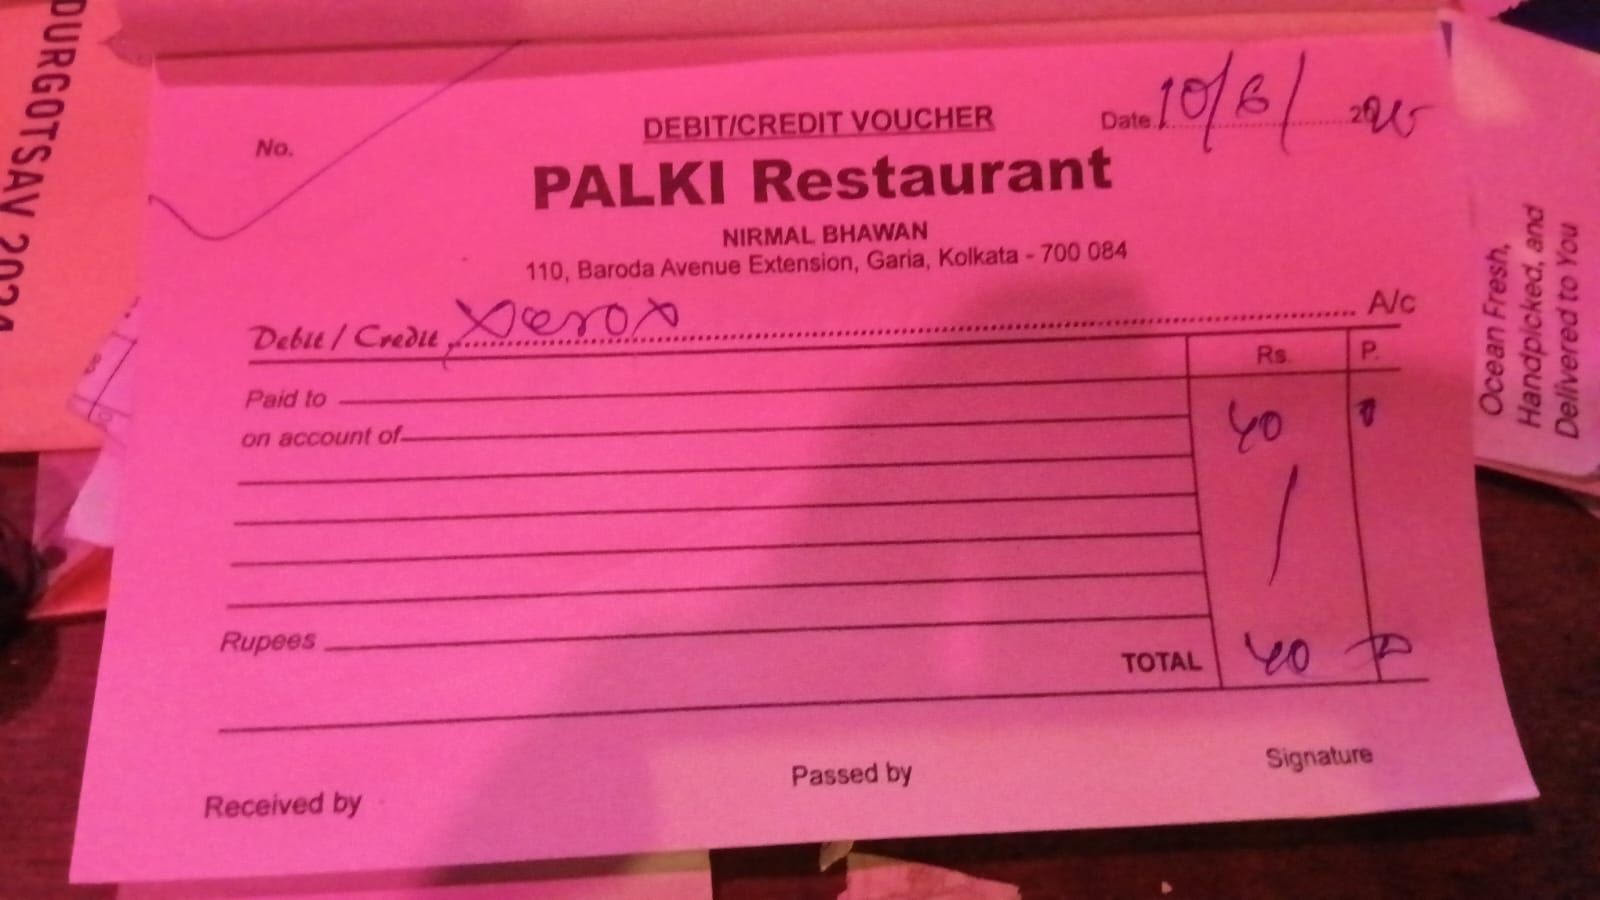 DURGOTSAV 2024
No.
DEBIT/CREDIT VOUCHER
Date 10/6/ 2025
PALKI Restaurant
NIRMAL BHAWAN
110, Baroda Avenue Extension, Garia, Kolkata - 700 084
Debit / Credit Xerox A/c
Rs. P.
Paid to 40
on account of
Rupees
TOTAL 40
Received by
Passed by
Signature
Ocean Fresh,
Handpicked, and
Delivered to You